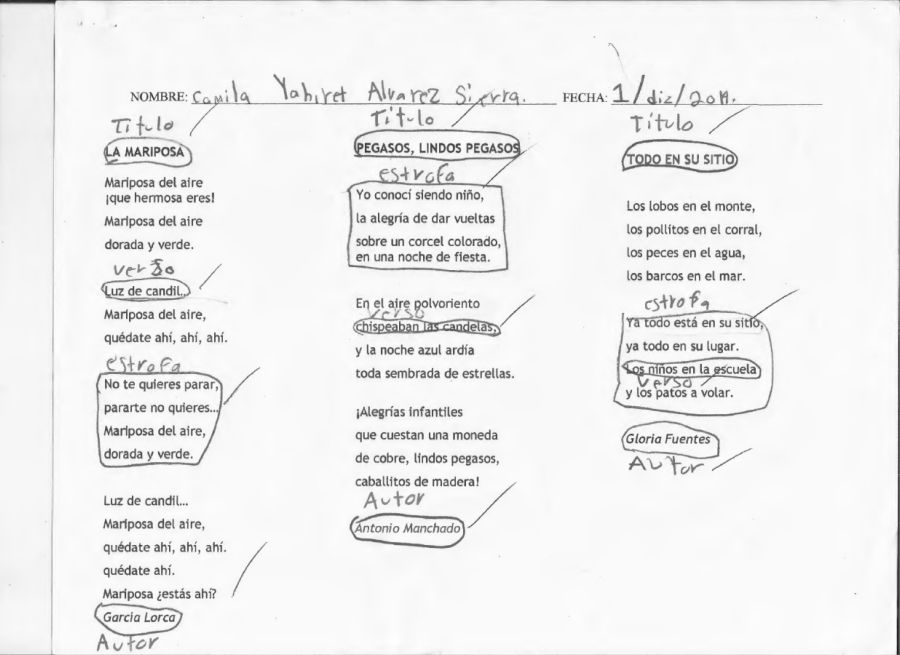 NOMBRE: Camila Yahiret Alvarez Sierra. FECHA: 1/diz/2011.
Titulo
LA MARIPOSA
Mariposa del aire
¡que hermosa eres!
Mariposa del aire
dorada y verde.
verso
Luz de candil...
Mariposa del aire,
quédate ahí, ahí, ahí.
estrofa
No te quieres parar,
pararte no quieres...
Mariposa del aire,
dorada y verde.
Luz de candil...
Mariposa del aire,
quédate ahí, ahí, ahí.
quédate ahí.
Mariposa ¿estás ahí?
Garcia Lorca
Autor
Titulo
PEGASOS, LINDOS PEGASOS
estrofa
Yo conocí siendo niño,
la alegría de dar vueltas
sobre un corcel colorado,
en una noche de fiesta.
En el aire polvoriento
verso
chispeaban las candelas,
y la noche azul ardía
toda sembrada de estrellas.
¡Alegrías infantiles
que cuestan una moneda
de cobre, lindos pegasos,
caballitos de madera!
Autor
Antonio Manchado
Título
TODO EN SU SITIO
Los lobos en el monte,
los pollitos en el corral,
los peces en el agua,
los barcos en el mar.
estrofa
Ya todo está en su sitio,
ya todo en su lugar.
Los niños en la escuela
verso
y los patos a volar.
Gloria Fuentes
Autor